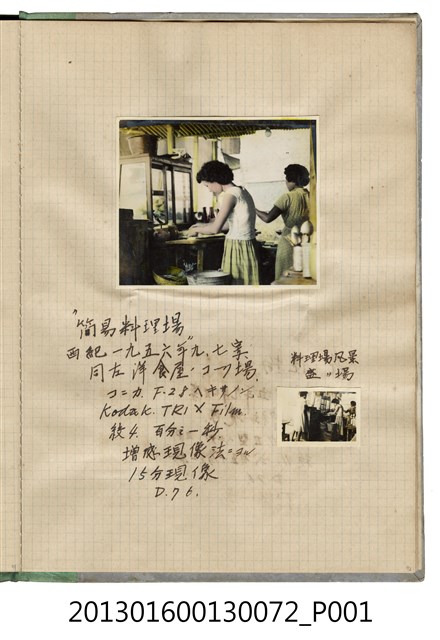 "簡易料理場"
西紀一九五六年九.七寫
同左洋食屋.コック場.
コニカ. F. 2.8
Kodak. TRI X Film.
絞 4. 百分之一秒
増感現像法ニテ
15分現像
D. 7 6.
料理場風景
盛り場
201301600130072_P001